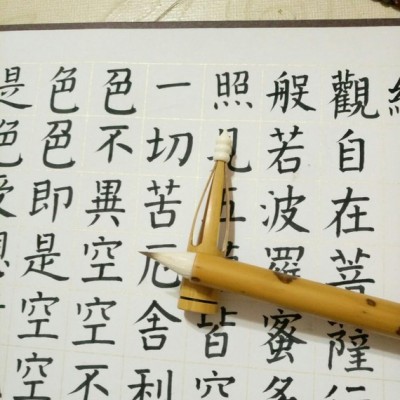 觀自在菩薩行
般若波羅蜜多
照見五皆空
一切苦厄舍利
色不異空空不
色色即是空空
是色受想